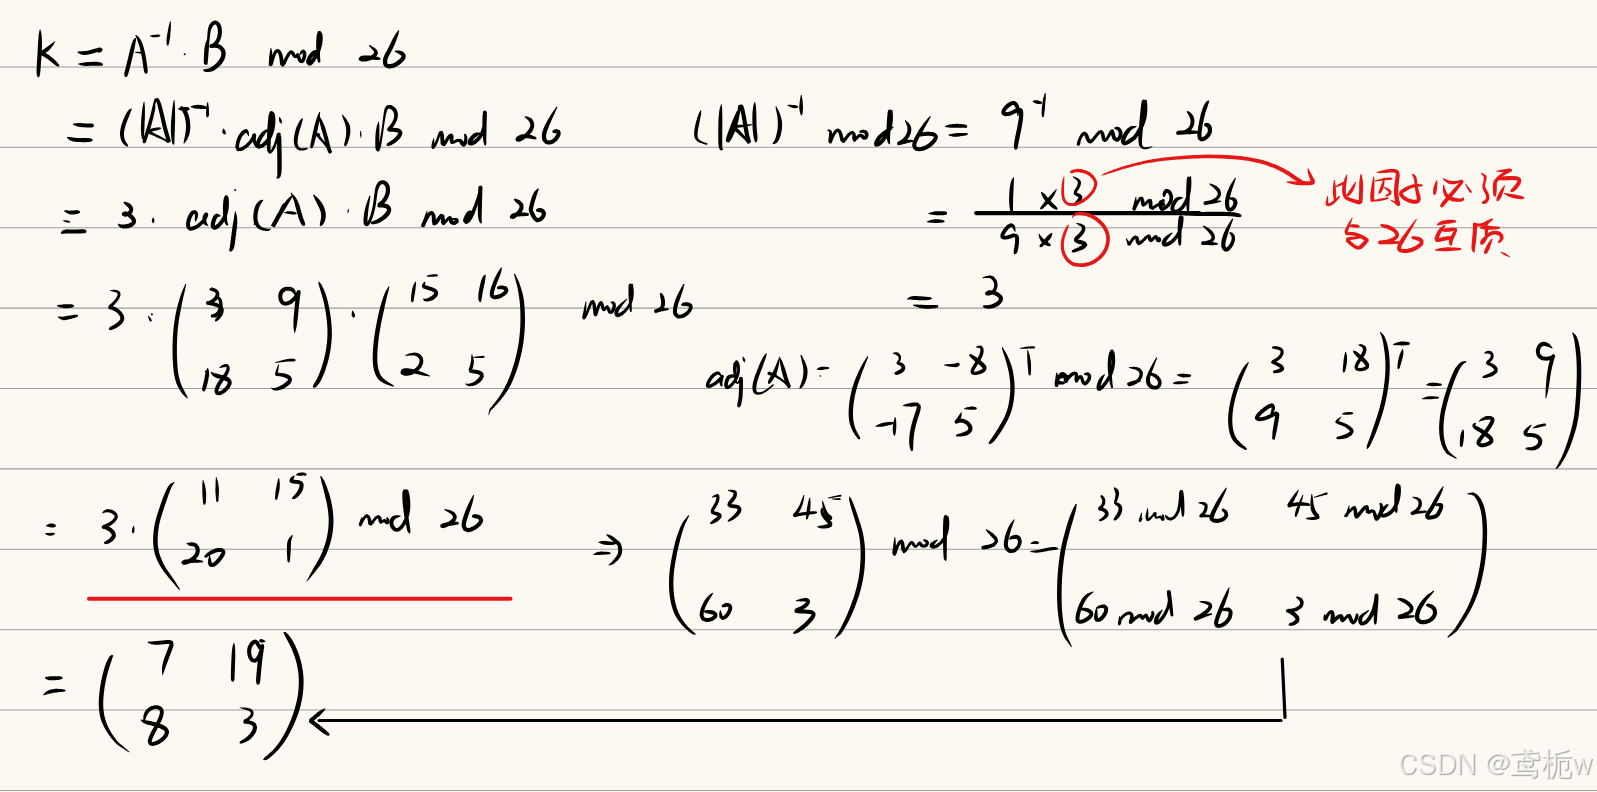 K = A⁻¹ · B mod 26
= (|A|)⁻¹ · adj(A) · B mod 26    (|A|)⁻¹ mod 26 = 9⁻¹ mod 26
= 3 · adj(A) · B mod 26    = (1 × 3 mod 26) / (9 × 3 mod 26)    此因子必须
与26互质
= 3 · (3 9; 18 5) · (15 16; 2 5) mod 26    = 3
adj(A) = (3 -8; -17 5)ᵀ mod 26 = (3 18; 9 5)ᵀ = (3 9; 18 5)
= 3 · (11 15; 20 1) mod 26 ⇒ (33 45; 60 3) mod 26 = (33 mod 26 45 mod 26; 60 mod 26 3 mod 26)
= (7 19; 8 3)
CSDN @鸢栀w